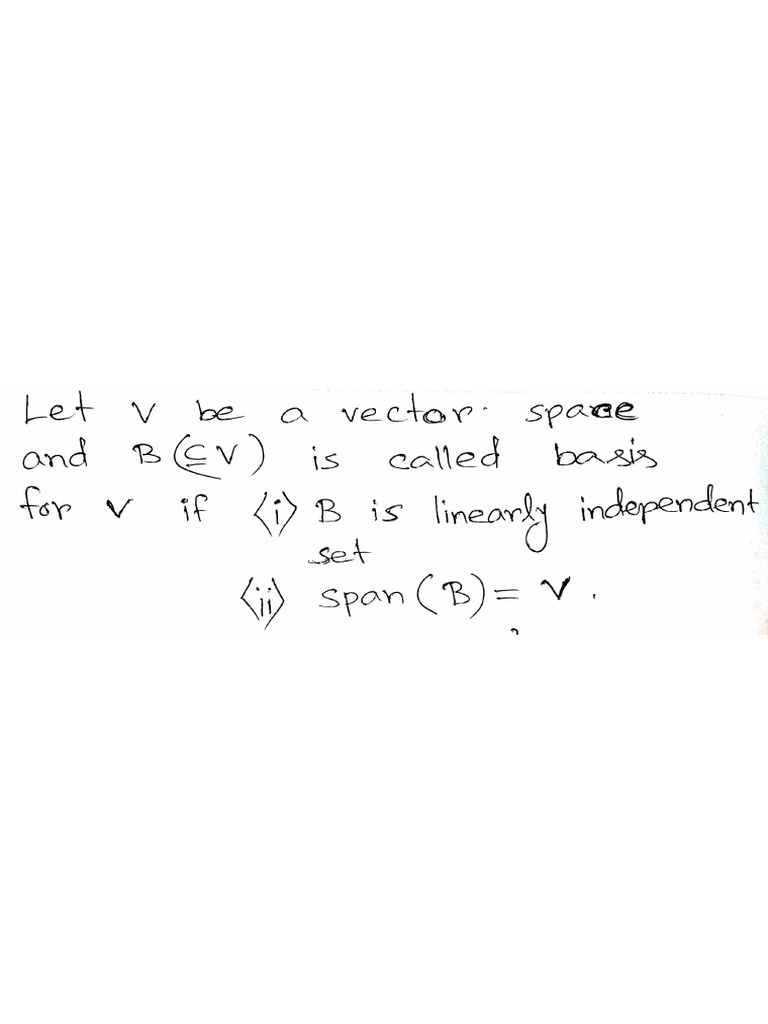 Let V be a vector space
and B (⊆V) is called basis
for V if <i> B is linearly independent
set
<ii> span (B) = V.